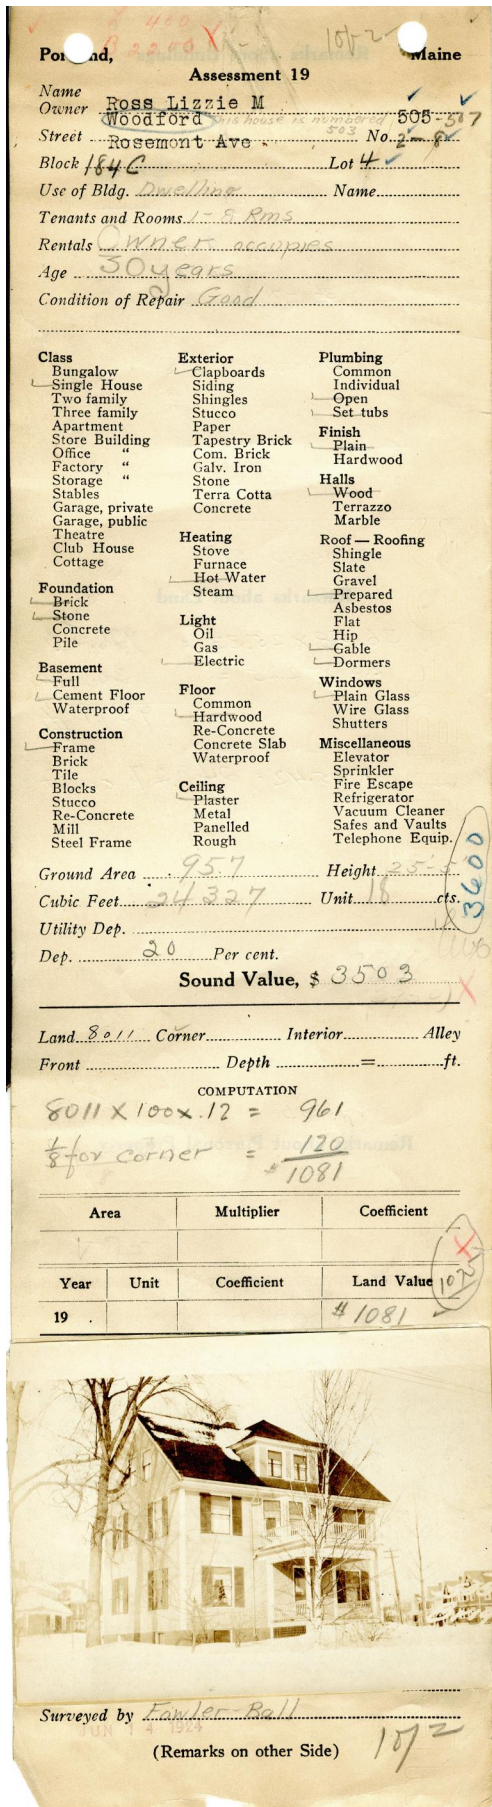 L 400
B 2200 X
10/-2
Portland, Maine
Assessment 19
Name
Owner Ross Lizzie M
Woodford This house is numbered 503 505-507
Street Rosemont Ave No. 2-8
Block 184 C Lot 4
Use of Bldg. Dwelling Name
Tenants and Rooms 1-8 Rms
Rentals Owner occupies
Age 30 years
Condition of Repair Good
Class
Bungalow
Single House
Two family
Three family
Apartment
Store Building
Office "
Factory "
Storage "
Stables
Garage, private
Garage, public
Theatre
Club House
Cottage
Foundation
Brick
Stone
Concrete
Pile
Basement
Full
Cement Floor
Waterproof
Construction
Frame
Brick
Tile
Blocks
Stucco
Re-Concrete
Mill
Steel Frame
Exterior
Clapboards
Siding
Shingles
Stucco
Paper
Tapestry Brick
Com. Brick
Galv. Iron
Stone
Terra Cotta
Concrete
Heating
Stove
Furnace
Hot Water
Steam
Light
Oil
Gas
Electric
Floor
Common
Hardwood
Re-Concrete
Concrete Slab
Waterproof
Ceiling
Plaster
Metal
Panelled
Rough
Plumbing
Common
Individual
Open
Set tubs
Finish
Plain
Hardwood
Halls
Wood
Terrazzo
Marble
Roof — Roofing
Shingle
Slate
Gravel
Prepared
Asbestos
Flat
Hip
Gable
Dormers
Windows
Plain Glass
Wire Glass
Shutters
Miscellaneous
Elevator
Sprinkler
Fire Escape
Refrigerator
Vacuum Cleaner
Safes and Vaults
Telephone Equip.
3600
Ground Area 957 Height 25-5
Cubic Feet 24327 Unit 18 cts.
Utility Dep.
Dep. 20 Per cent.
Sound Value, $ 3503
X
Land 8011 Corner Interior Alley
Front Depth = ft.
COMPUTATION
8011 X 100 x .12 = 961
1/8 for corner = 120
$ 1081
Area Multiplier Coefficient
X
1025
Year Unit Coefficient Land Value
19 . $ 1081
Surveyed by Fowler-Ball
JUN 14 1924
(Remarks on other Side)
10/2